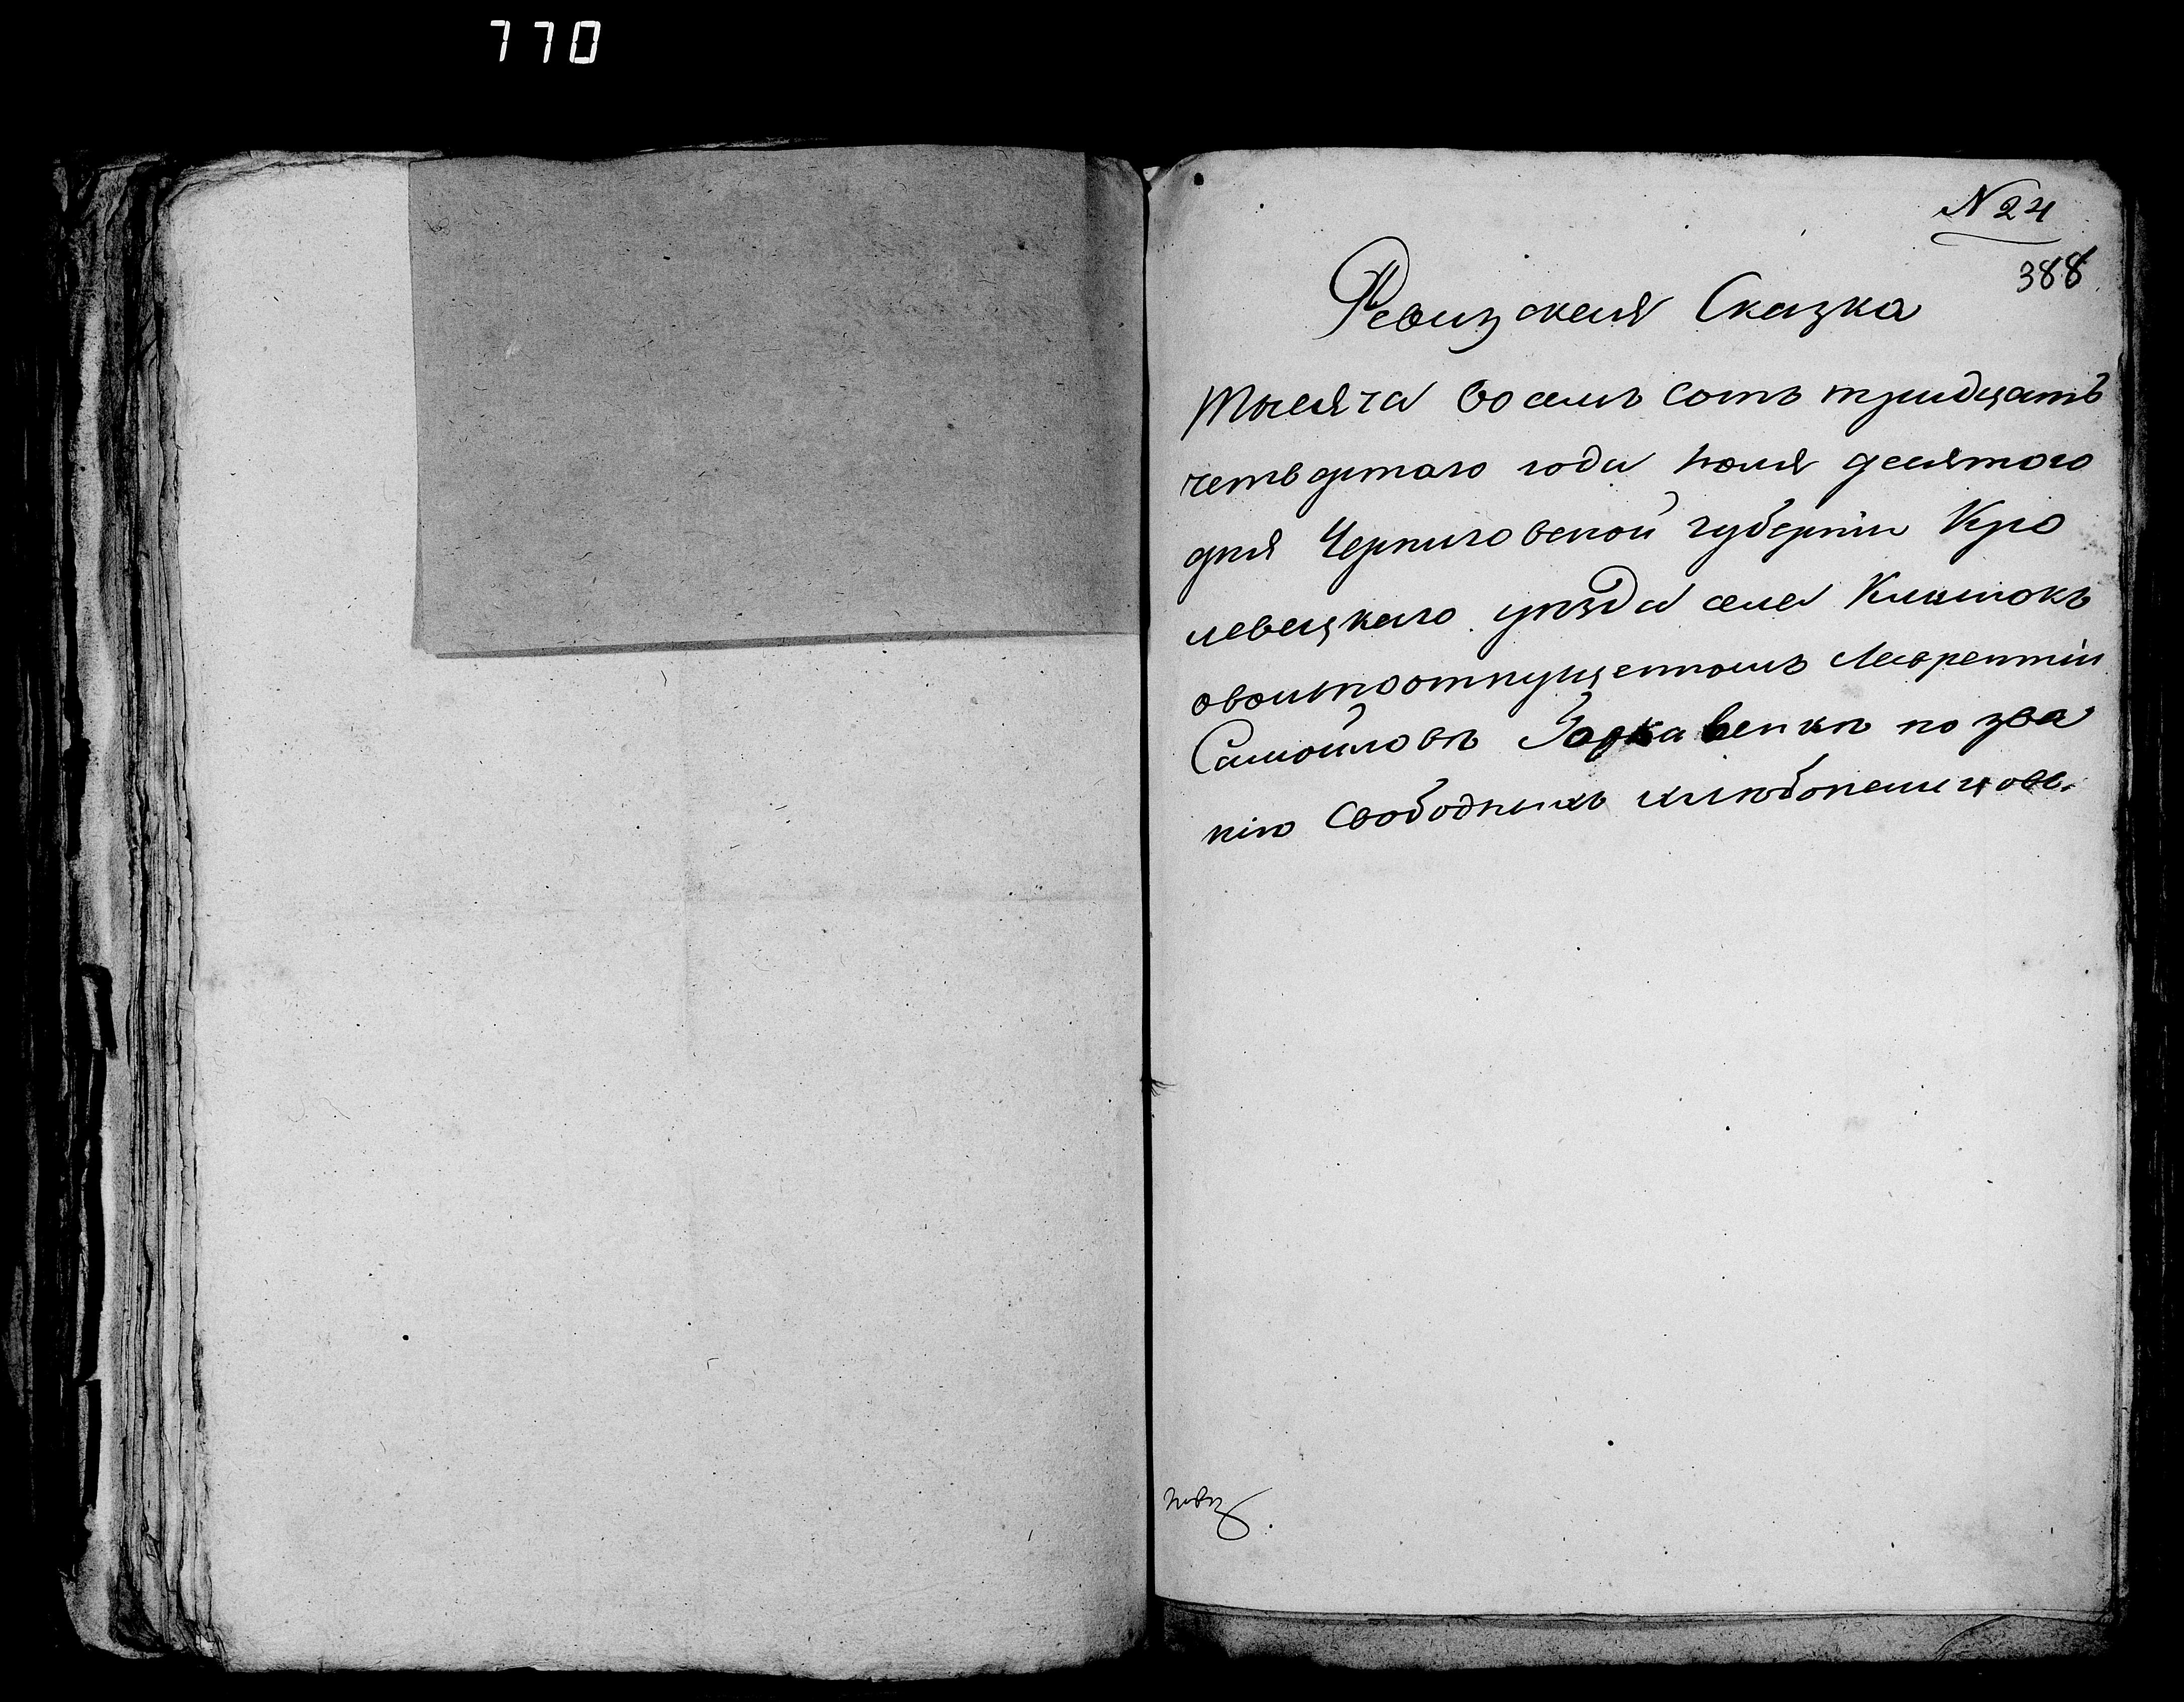 770
N 24
388
Ревизская Сказка
Тысяча восемь сотъ тридцать
четвертаго года июля десятого
дня Черниговской губернии Кро
левецкаго уѣзда села Клишокъ
овольноотпущенномъ Лаврентіи
Самойловѣ по зва
нію Свободныхъ хлѣбопашцовъ.